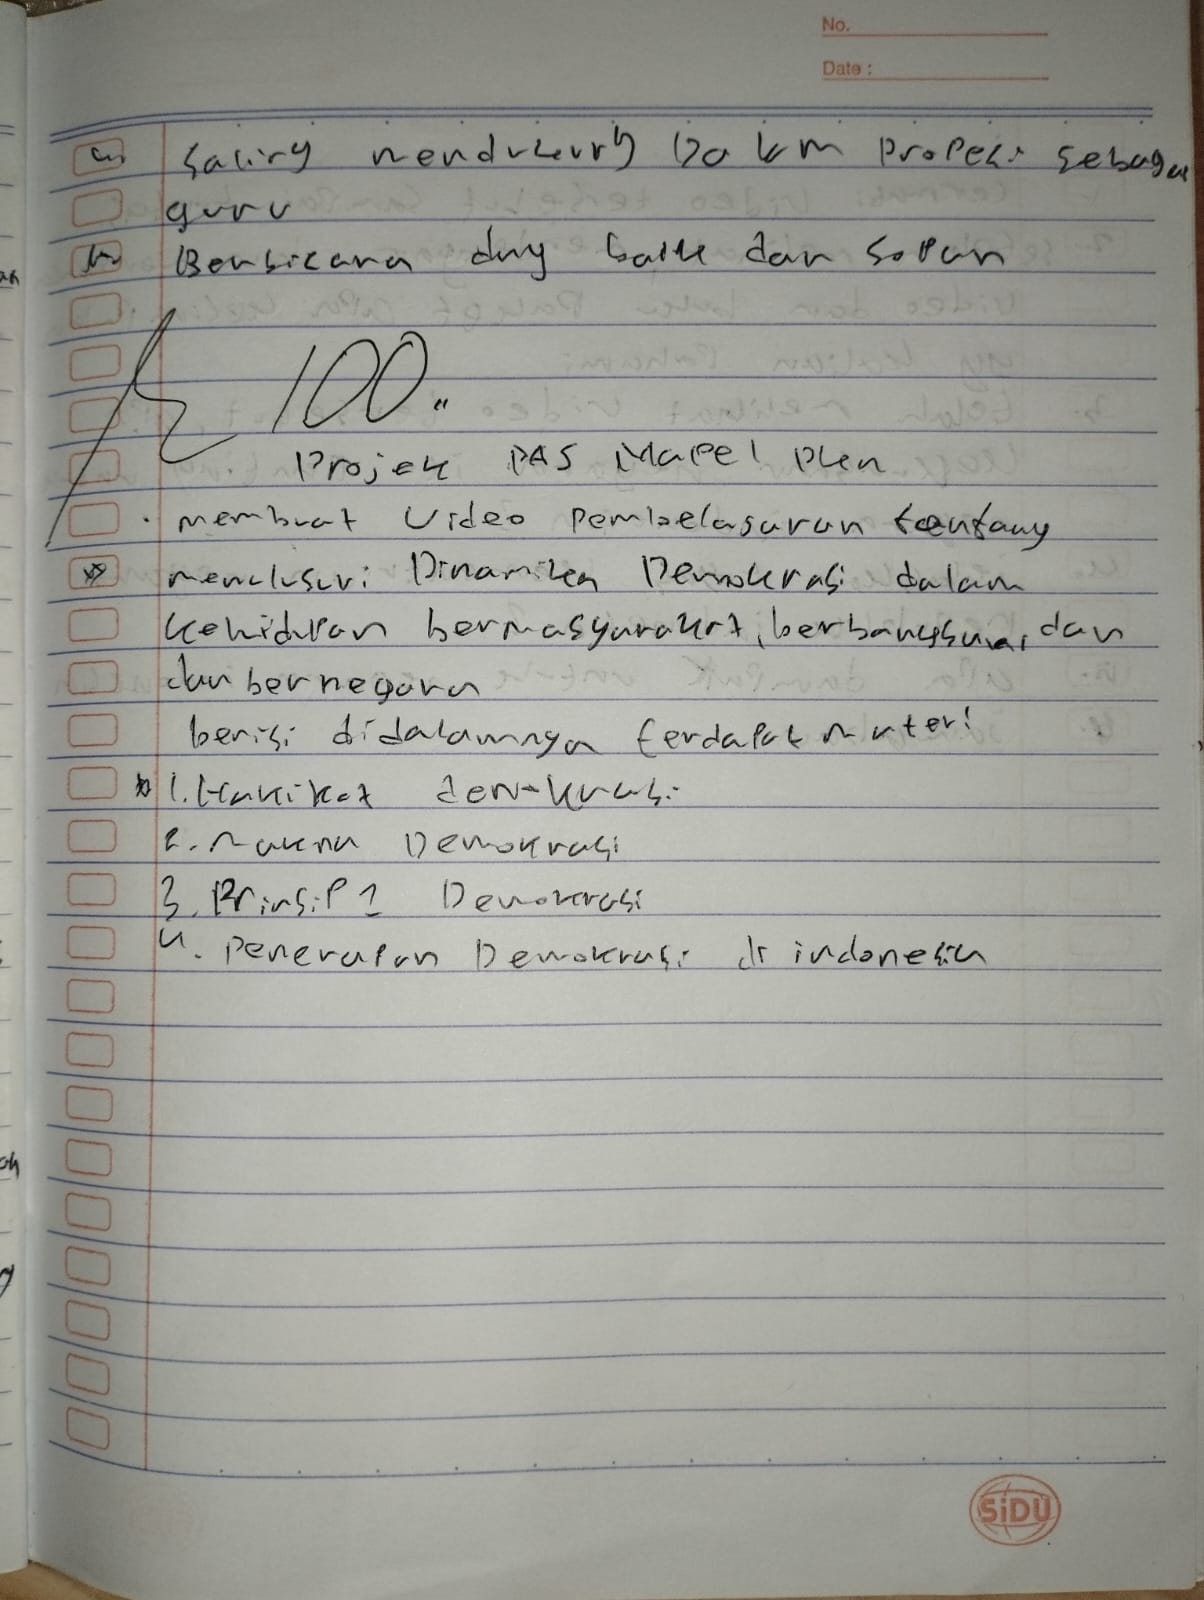 No.
Date :
saling mendukung Dalam Propesi sebagai
guru
Berbicara dng baik dan sopan
100
Projek PAS Mapel PKn
membuat video pembelasaran tentang
menelusuri Dinamika Demokrasi dalam
kehidupan bermasyarakat, berbangsa, dan
dan bernegara
berisi didalamnya terdapat materi
1. Hakikat demokrasi
2. Makna Demokrasi
3. Prinsip2 Demokrasi
4. Penerapan Demokrasi di indonesia
SiDU